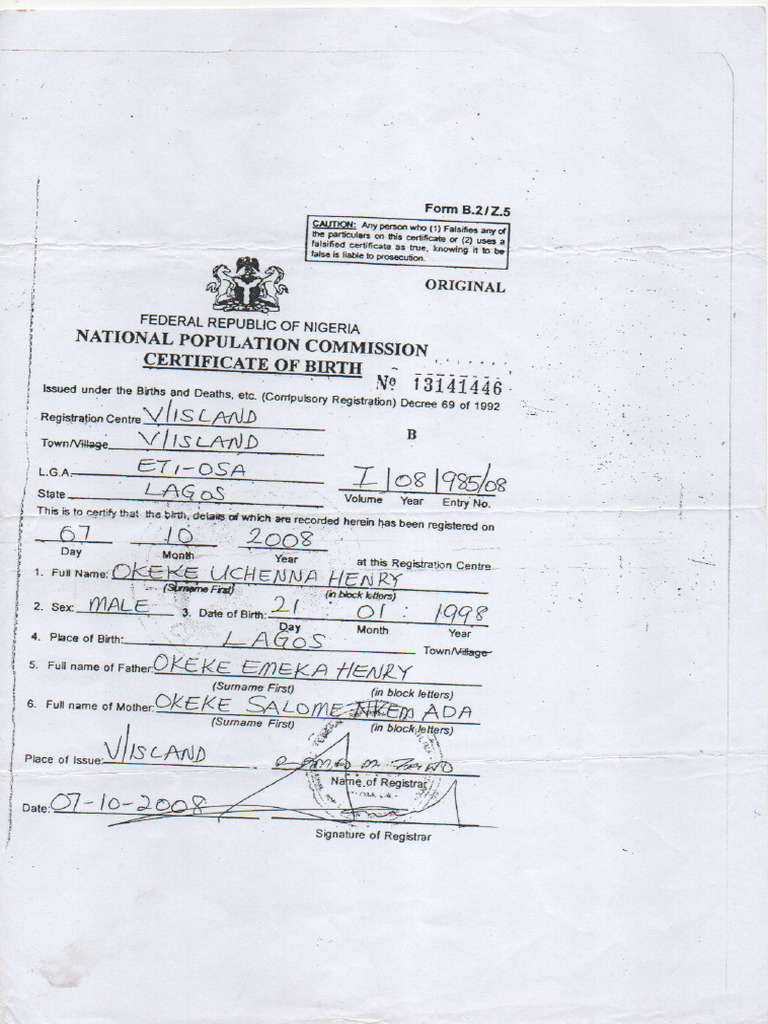 Form B.2/Z.5
CAUTION: Any person who (1) Falsifies any of
the particulars on this certificate or (2) uses a
falsified certificate as true, knowing it to be
false is liable to prosecution.
ORIGINAL
FEDERAL REPUBLIC OF NIGERIA
NATIONAL POPULATION COMMISSION
CERTIFICATE OF BIRTH
No 13141446
Issued under the Births and Deaths, etc. (Compulsory Registration) Decree 69 of 1992
Registration Centre V/ISLAND
Town/Village V/ISLAND
B
L.G.A. ETI-OSA
I 08 985/08
Volume Year Entry No.
State LAGOS
This is to certify that the birth, details of which are recorded herein has been registered on
07 10 2008
Day Month Year at this Registration Centre
1. Full Name: OKEKE UCHENNA HENRY
(Surname First) (in block letters)
2. Sex: MALE 3. Date of Birth: 21 01 1998
Day Month Year
4. Place of Birth: LAGOS Town/Village
5. Full name of Father: OKEKE EMEKA HENRY
(Surname First) (in block letters)
6. Full name of Mother: OKEKE SALOME NKEM ADA
(Surname First) (in block letters)
Place of Issue: V/ISLAND
Name of Registrar
Date: 07-10-2008
Signature of Registrar